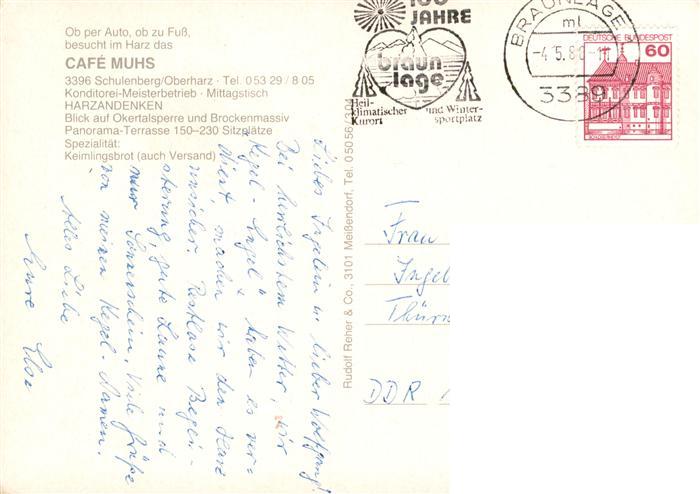 Ob per Auto, ob zu Fuß,
besucht im Harz das
CAFÉ MUHS
3396 Schulenberg/Oberharz · Tel. 0 53 29 / 8 05
Konditorei-Meisterbetrieb · Mittagstisch
HARZANDENKEN
Blick auf Okertalsperre und Brockenmassiv
Panorama-Terrasse 150–230 Sitzplätze
Spezialität:
Keimlingsbrot (auch Versand)
100
JAHRE
braun
lage
Heil-
klimatischer
Kurort
und Winter-
sportplatz
BRAUNLAGE
ml
3389
DEUTSCHE BUNDESPOST
60
Rudolf Reher & Co., 3101 Meißendorf, Tel. 0 50 56 /
Liebes Ingelein u. lieber Wolfgang!
Bei herrlichstem Wetter, wir
Kegel-Engel" haben es ver-
dient, machen wir den Harz
unsicher. Restlose Begei-
sterung, gute Laune und
nur Sonnenschein. Viele Grüße
von meinen Kegel-Damen.
Alles Liebe
Eure Else
Frau
Ingel
Thürn
DDR